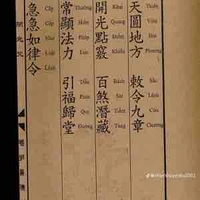 天圓地方 敕令九章
Thiên Viên Địa Phương Sắc Lệnh Cửu Chương
開光點竅 百煞潛藏
Khai Quang Điểm Khiếu Bách Sát Tiềm Tàng
常顯法力 引福歸堂
Thường Hiển Pháp Lực Dẫn Phúc Quy Đường
急急如律令
Cấp Cấp Như Luật Lệnh
開光文